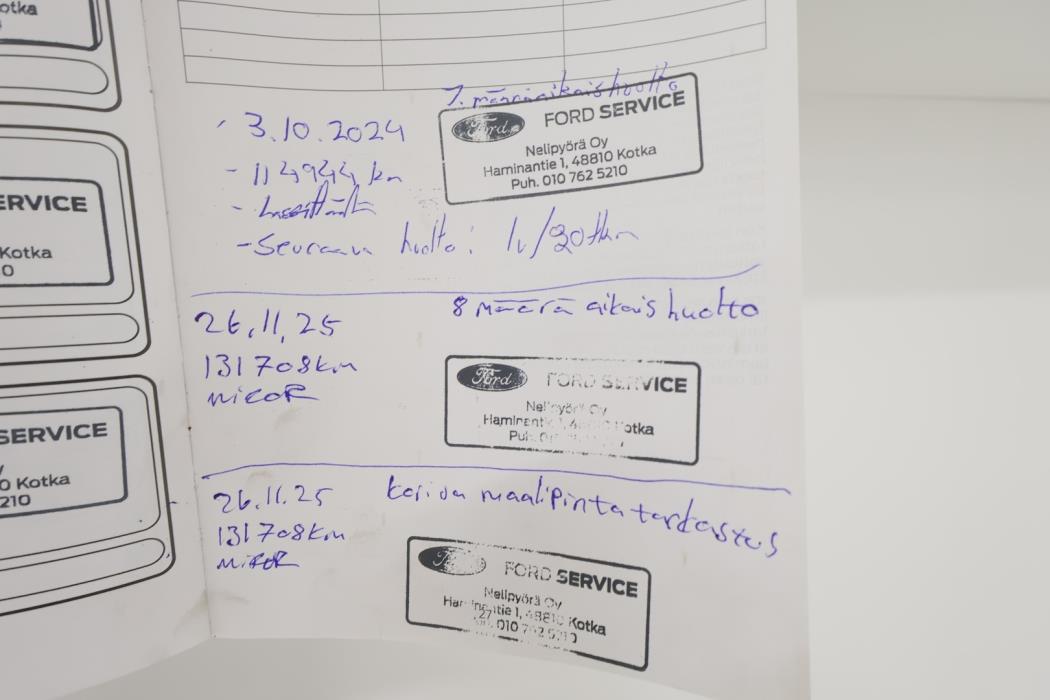 otka
ERVICE
Kotka
0
SERVICE
0 Kotka
210
7. määräaikaishuolto
- 3.10.2024
- 114944 km
- Seuraava huolto: 1v/20tkm
Ford FORD SERVICE
Nelipyörä Oy
Haminantie 1, 48810 Kotka
Puh. 010 762 5210
26.11.25
8 määräaikaishuolto
131708km
Ford FORD SERVICE
Nelipyörä Oy
Haminantie 1, 48810 Kotka
26.11.25
Kori ja maalipinta tarkastus
131708km
Ford FORD SERVICE
Nelipyörä Oy
Haminantie 1, 48810 Kotka
010 762 5210